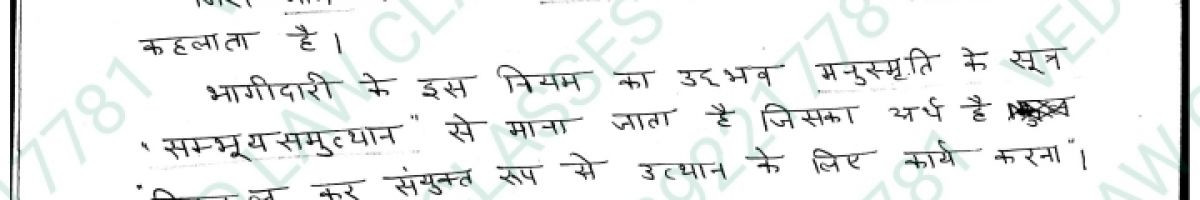 कहलाता है।
भागीदारी के इस नियम का उद्दभव मनुस्मृति के सूत्र
"सम्भूय समुत्थान" से माना जाता है जिसका अर्थ है
कर संयुक्त रूप से उत्थान के लिए कार्य करना"।